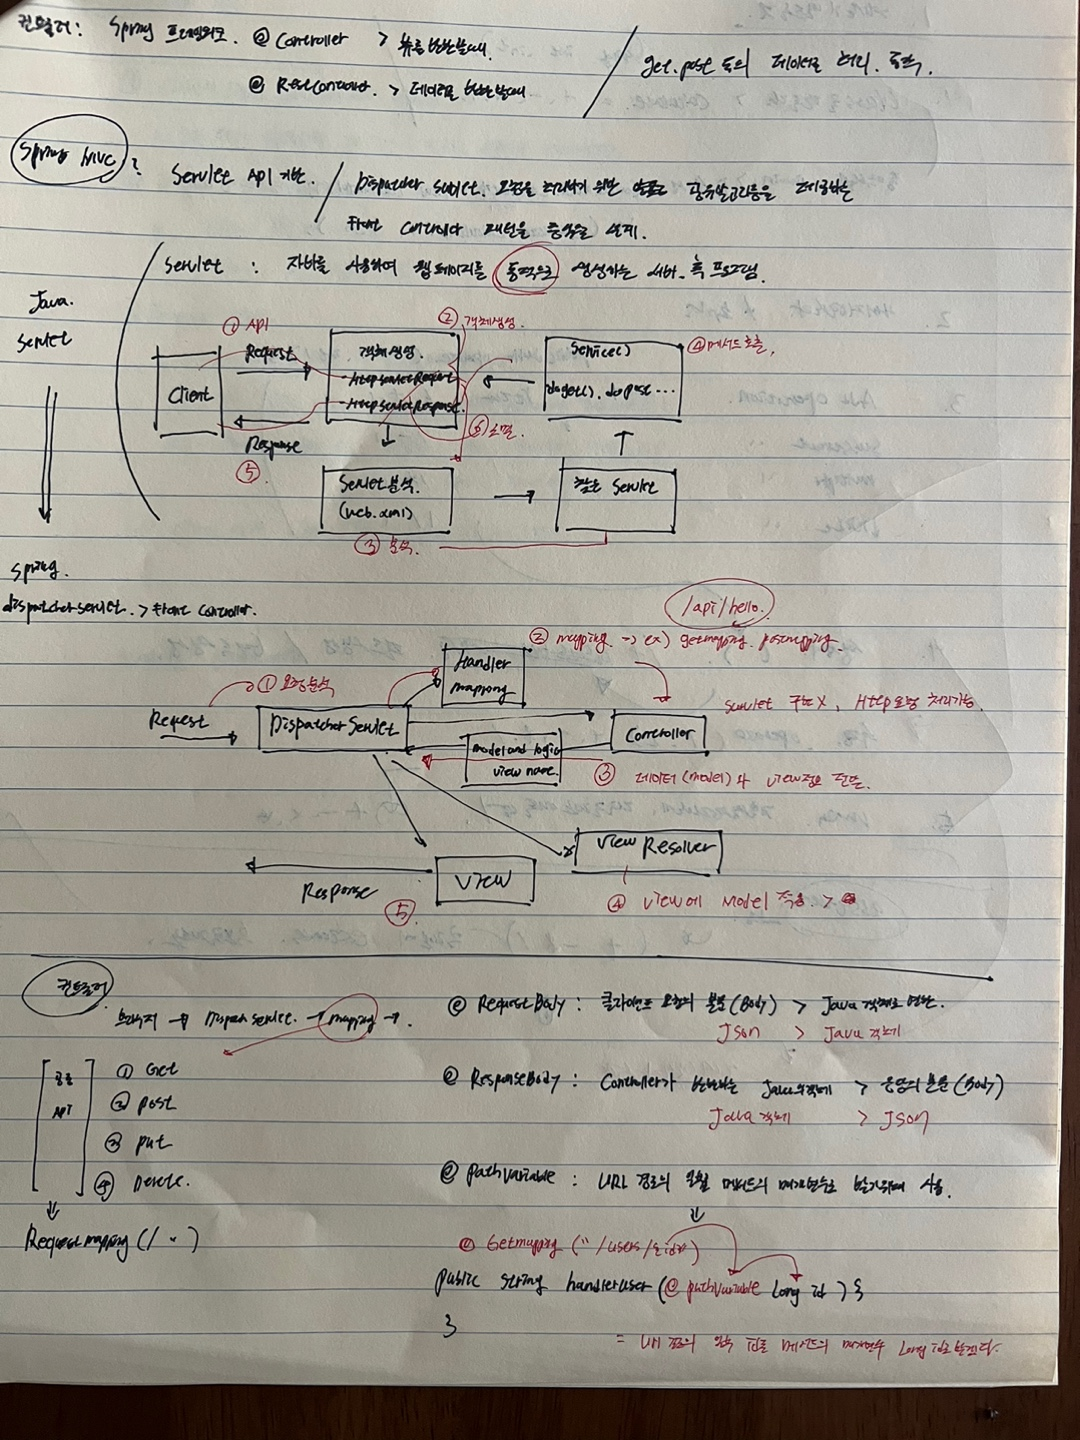 컨트롤러: Spring 프레임워크. @ Controller > 뷰를 반환할때 / get.post 등의 데이터를 처리.
@ RestController. > 데이터를 반환할때
Spring MVC ? Servlet API 기반. / Dispatcher Servlet. 요청을 처리하기 위한 공유알고리즘을 제공하는
Front Controller 패턴을 중심으로 설계.
Servlet : 자바를 사용하여 웹페이지를 동적으로 생성하는 서버 측 프로그램.
Java.
Servlet
① API
② 객체생성.
④ 메서드 호출,
Client
Request
객체생성.
- HttpServletRequest
- HttpServletResponse.
Service()
doget(). dopost ...
Response
⑤
⑥ 소멸.
Servlet 분석.
(web.xml)
찾는 Servlet
③ 분석.
Spring.
dispatcherservlet. > Front Controller.
/api/hello.
② mapping → ex) getmapping. postmapping.
① 요청분석
Handler
mapping
Request
DispatcherServlet
Controller
Servlet 구현X, Http요청 처리가능.
model and logic
view name.
③ 데이터(model)와 view정보 전달.
View Resolver
VIEW
Response
⑤
④ View에 Model 적용 >
컨트롤러
브라우저 → Dispan servlet. → mapping →.
공통
API
① Get
② post
③ put
④ Delete.
Request mapping (/ ")
@ RequestBody : 클라이언트 요청의 본문(Body) > Java 객체로 변환.
Json > Java 객체
@ ResponseBody : Controller가 반환하는 Java객체 > 응답의 본문(Body)
Java 객체 > JSON
@ PathVariable : URL 경로의 일부를 메서드의 매개변수로 받기위해 사용.
@ Getmapping ("/users/{id})
public string handleruser (@ pathVariable Long id ) {
}
= URI 경로의 일부 id를 메서드의 매개변수 Long id로 받겠다.